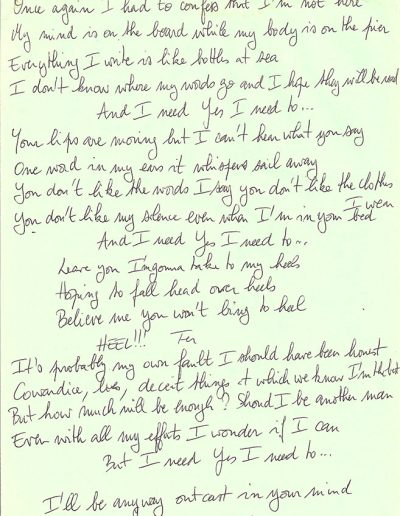 Once again I had to confess that I'm not here
My mind is on the board while my body is on the pier
Everything I write is like bottles at sea
I don't know where my words go and I hope they will be read
And I need Yes I need to...
Your lips are moving but I can't hear what you say
One word in my ears it whispers sail away
You don't like the words I say you don't like the clothes
I wear
You don't like my silence even when I'm in your bed
And I need Yes I need to...
Leave you I'm gonna take to my heels
Hoping to fall head over heels
Believe me you won't bring to heel
HEEL!!!
It's probably my own fault I should have been honest
Cowardice, lies, deceit things at which we know I'm the best
But how much will be enough? Should I be another man
Even with all my efforts I wonder if I can
But I need Yes I need to...
I'll be anyway outcast in your mind